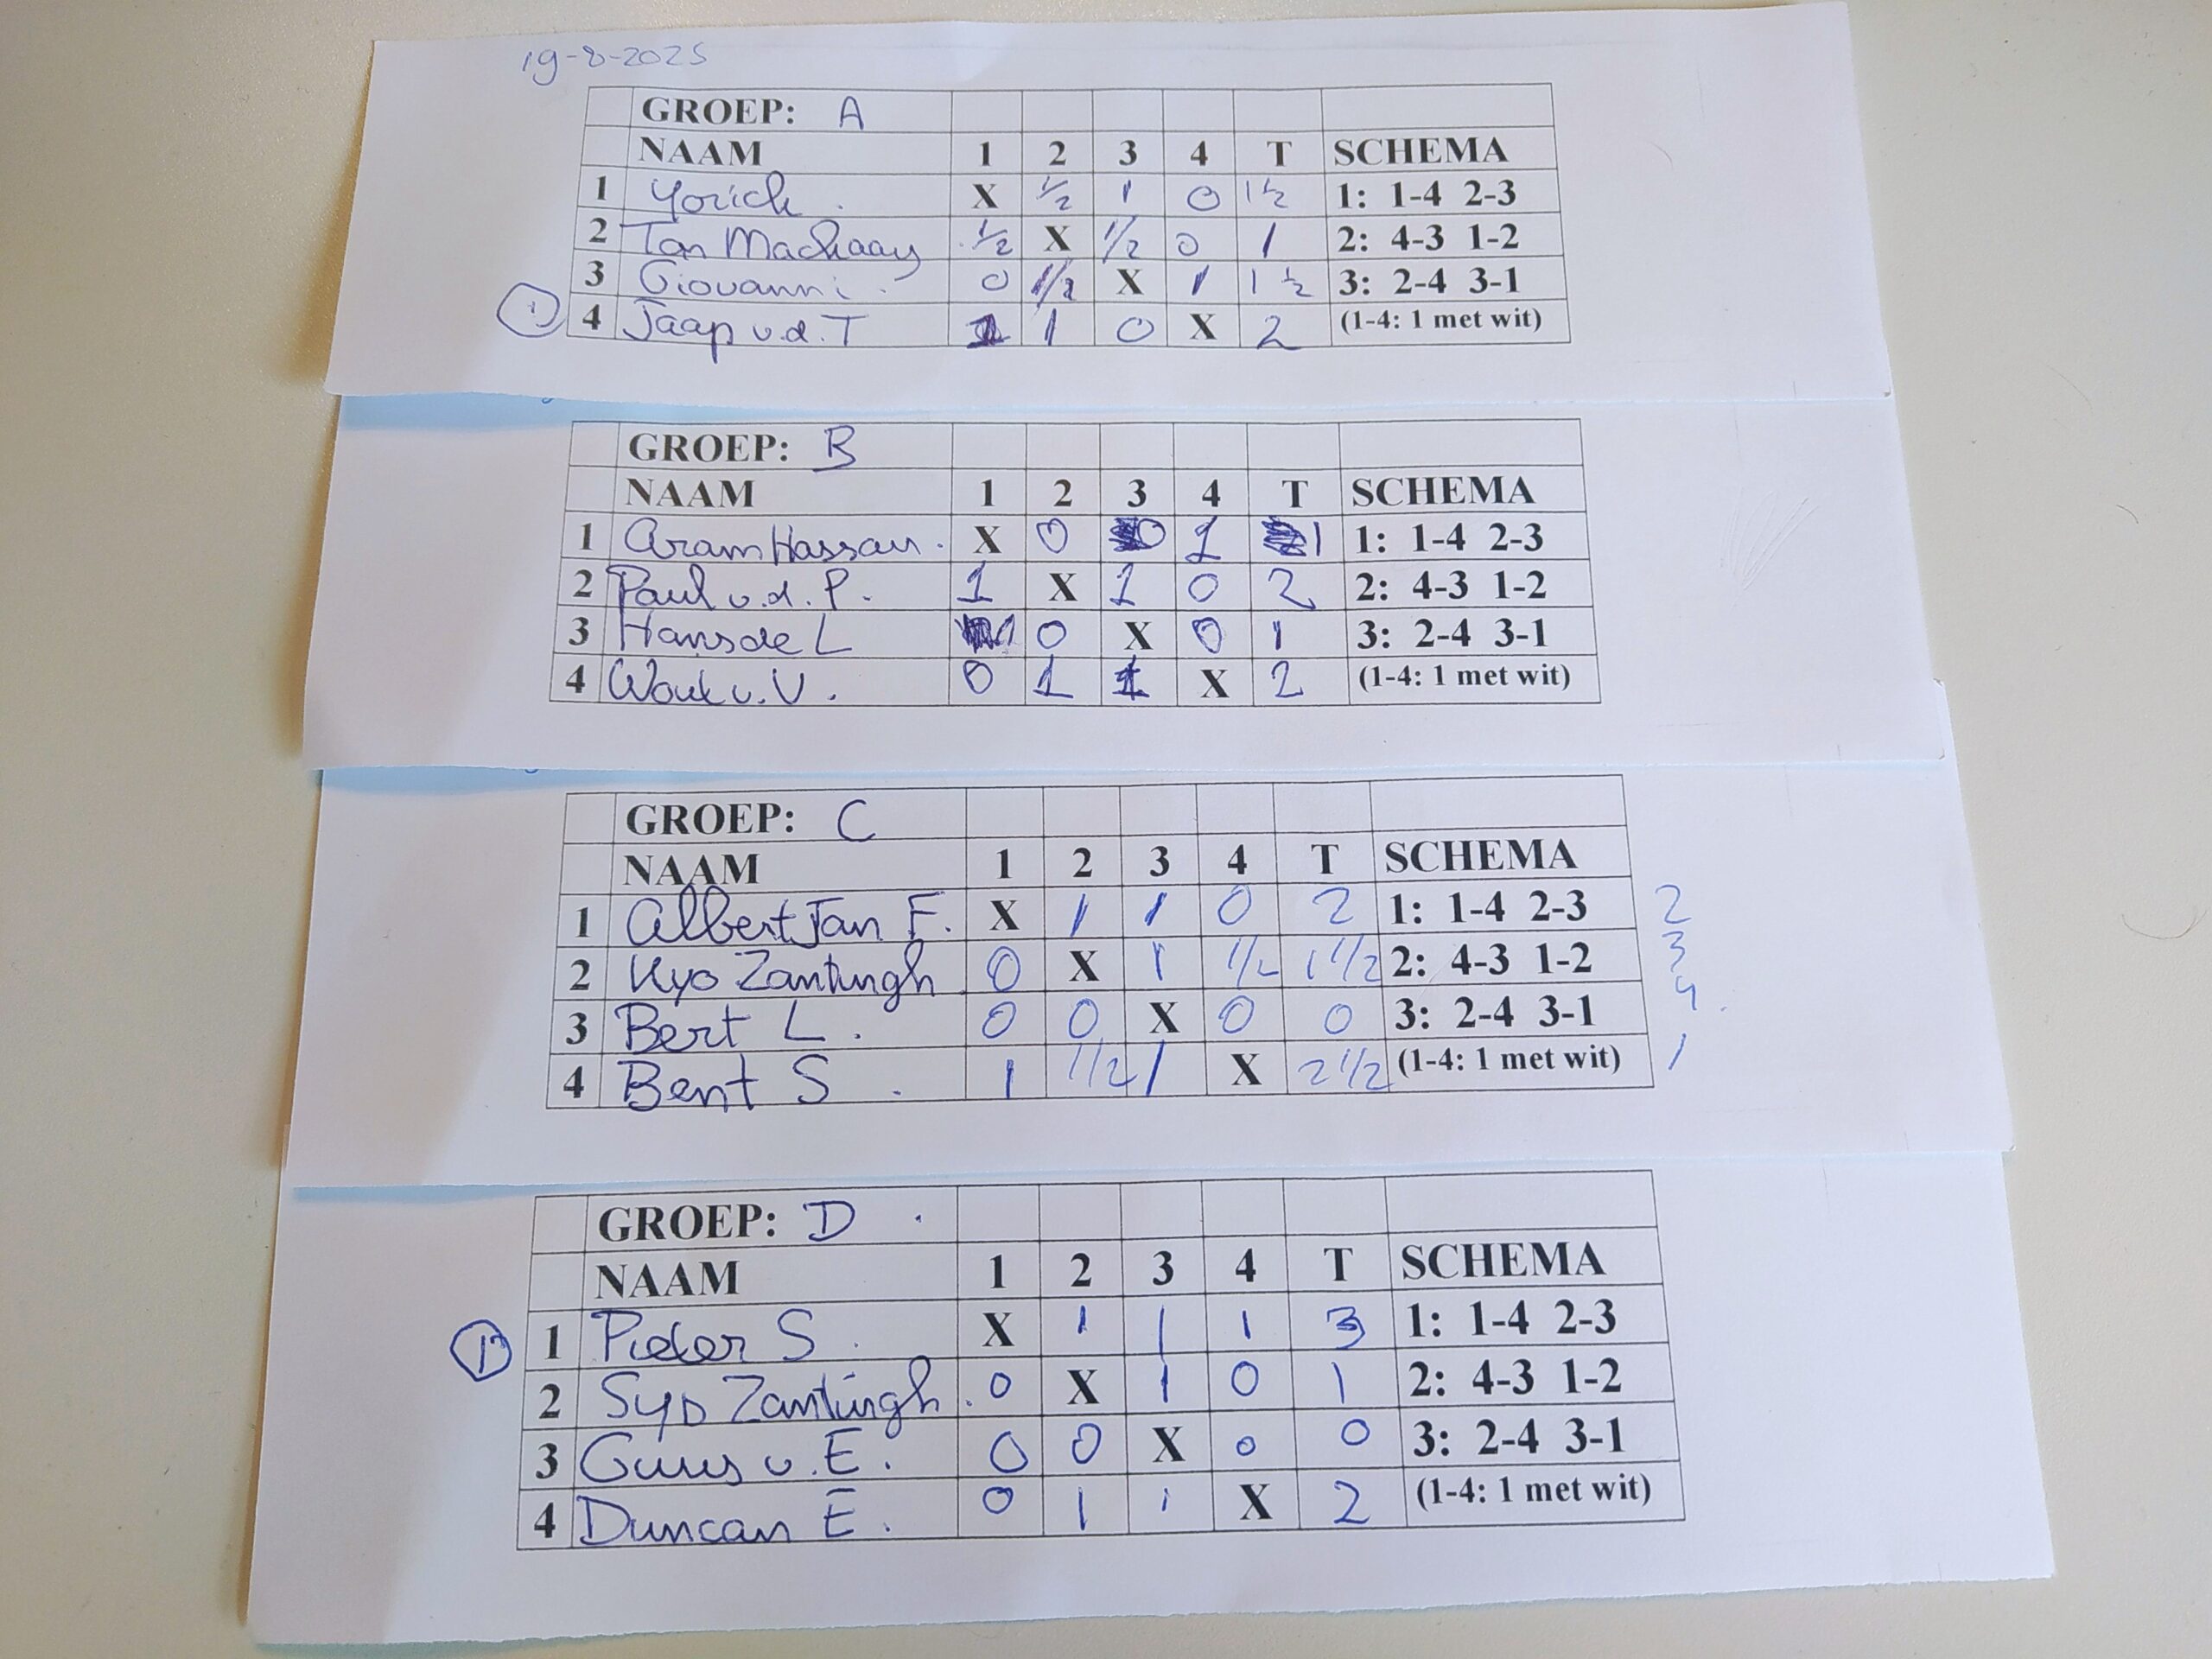 19-8-2025
GROEP: A
NAAM 1 2 3 4 T SCHEMA
1 Yorick X 1/2 1 0 1 1/2 1: 1-4 2-3
2 Ton Machaay 1/2 X 1/2 0 1 2: 4-3 1-2
3 Giovanni 0 1/2 X 1 1 1/2 3: 2-4 3-1
1 4 Jaap v.d. T 1 1 0 X 2 (1-4: 1 met wit)
GROEP: B
NAAM 1 2 3 4 T SCHEMA
1 Aram Hassan. X 0 0 1 1 1: 1-4 2-3
2 Paul v.d. P. 1 X 1 0 2 2: 4-3 1-2
3 Hans de L 1 0 X 0 1 3: 2-4 3-1
4 Wouk v. V. 0 1 1 X 2 (1-4: 1 met wit)
GROEP: C
NAAM 1 2 3 4 T SCHEMA
1 Albert Jan F. X 1 1 0 2 1: 1-4 2-3 2
2 Kyo Zantingh 0 X 1 1/2 1 1/2 2: 4-3 1-2 3
3 Bert L. 0 0 X 0 0 3: 2-4 3-1 4.
4 Bent S. 1 1/2 1 X 2 1/2 (1-4: 1 met wit) 1
GROEP: D
NAAM 1 2 3 4 T SCHEMA
1 1 Pieter S. X 1 1 1 3 1: 1-4 2-3
2 Syb Zantingh. 0 X 1 0 1 2: 4-3 1-2
3 Guus v. E. 0 0 X 0 0 3: 2-4 3-1
4 Duncan E. 0 1 1 X 2 (1-4: 1 met wit)